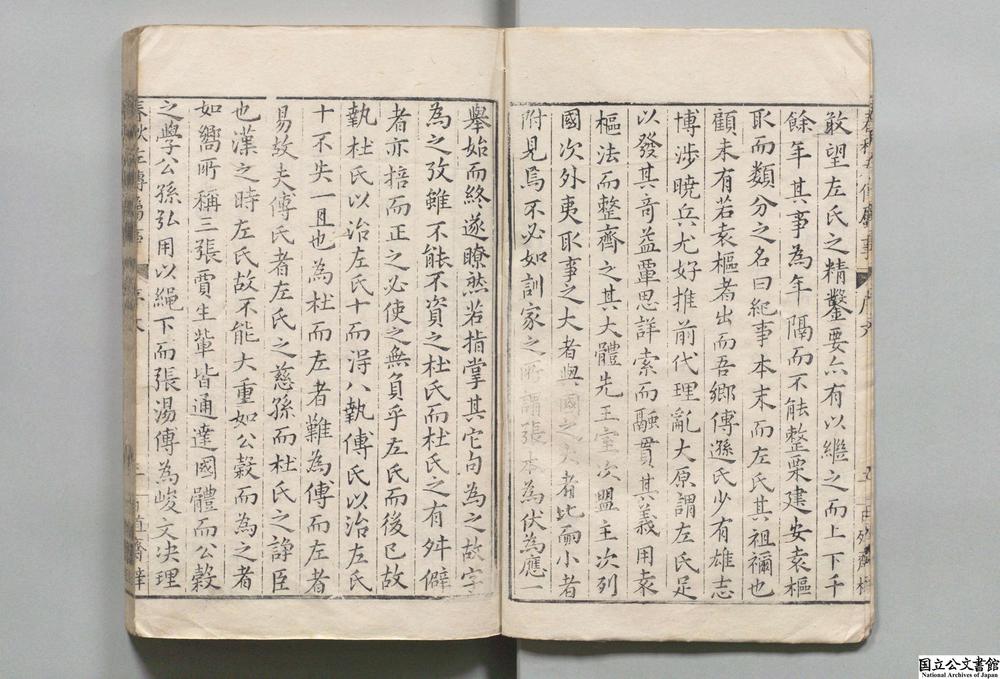 敢望左氏之精鑿要亦有以繼之而上下千
餘年其事為年隔而不能整栗建安袁樞
取而類分之名曰紀事本末而左氏其祖禰也
顧未有若袁樞者出而吾鄉傅遜氏少有雄志
博涉曉兵尤好推前代理亂大原謂左氏足
以發其奇益覃思詳索而融貫其義用袁
樞法而整齊之其大體先王室次盟主次列
國次外夷取事之大者與國之大者比而小者
附見焉不必如訓家之所謂張本為伏為應一
舉始而終遂瞭然若指掌其它句為之故字
為之攷雖不能不資之杜氏而杜氏之有舛僻
者亦掊而正之必使之無負乎左氏而後已故
執杜氏以治左氏十而得八執傅氏以治左氏
十不失一且也為杜而左者難為傅而左者
易故夫傅氏者左氏之慈孫而杜氏之諍臣
也漢之時左氏故不能大重如公穀而為之者
如嚮所稱三張賈生輩皆通達國體而公穀
之學公孫弘用以繩下而張湯傅為峻文決理
国立公文書館
National Archives of Japan